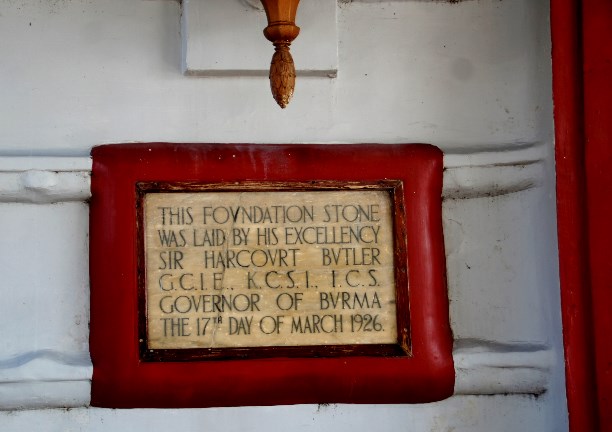 THIS FOVNDATION STONE
WAS LAID BY HIS EXCELLENCY
SIR HARCOVRT BVTLER
G.C.I.E., K.C.S.I., I.C.S.
GOVERNOR OF BVRMA
THE 17TH DAY OF MARCH 1926.